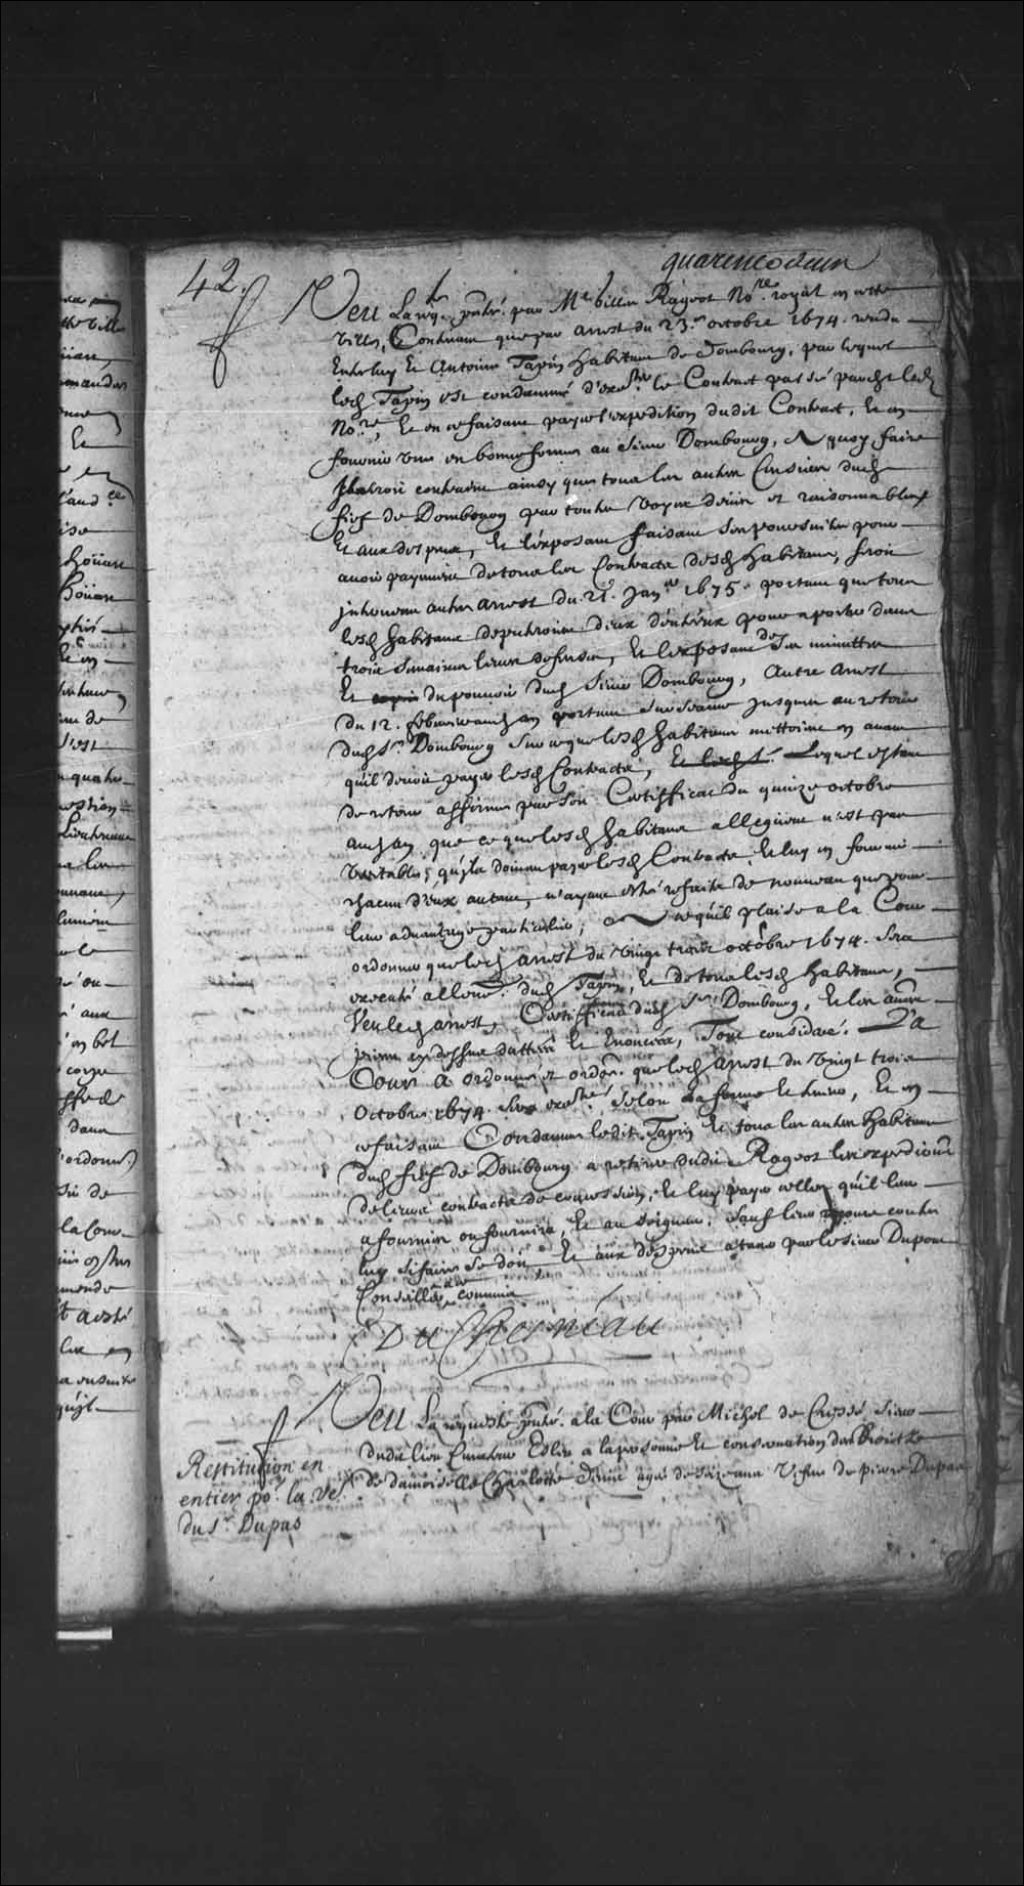 42.
quarente deux
Veu La reqte. pntée. par Me Gilles Rageot Nore. royal en cette
ville, Contenant que par arrest du 23e. octobre 1674. rendu
Entre luy Et Antoine Tapin habitant de Dombourg, par lequel
led Tapin est condamné d'exer. le Contract passé par led
Nore, Et en ce faisant payer l'expedition dudit Contract, Et en
fournir une en bonne forme au sieur Dombourg, A quoy faire
seroit contraint ainsy que tous les autres Censiers dud
fief de Dombourg par toutes voyes deües et raisonnables
Et aux despens, Et l'exposant faisant ses poursuites pour
avoir payement de tous les Contracts desd habitans, seroit
intervenu autre arrest du 21. Janer 1675. portant que tous
lesd habitans deputeroient d'eux d'entreux pour aporter dans
trois semaines leurs defenses, Et l'exposant de ses minuttes
Et du pouvoir dud sieur Dombourg, Autre Arrest
du 12. febvrier aud an portant surseance jusques au retour
dud Sr. Dombourg sur ce que lesd habitans mettoient en avant
qu'il devoit payer lesd Contracts, Et led S. Lequel estant
de retour affirme par son Certifficat du quinze octobre
aud an que ce que lesd habitans alleguent n'est pas
veritable, qu'ils doivent payer lesd Contracts, Et luy en fournir
chacun d'eux autant, n'ayant esté refaits de nouveau que pour
leur advantage particulier, A ce qu'il plaise a la Cour
ordonner que led arrest du vingt trois octobre 1674. sera
executé allencontre dud Tapin, Et de tous lesd habitans,
Veu led arrest, Certifficat dud Sr. Dombourg, Et les autres
pieces cy dessus dattées Et Enoncées, Tout consideré. La
Cour A ordonné et ordonne que led Arrest du vingt trois
Octobre 1674. sera exeté selon sa forme Et teneur, Et en
ce faisant Condamne ledit Tapin Et tous les autres habitans
dud fief de Dombourg a retirer dudit Rageot les expeditions
de leurs contracts de concession, Et luy payer celles qu'il leur
a fournies ou fournira, Et au seigneur, sauf leur recours contre
luy si faire se doit Et aux despens a taxer par le sieur Dupont
Conseiller commis
DuChesneau
Veu La requeste pntée. a la Cour par Michel de Cressé sieur
dudit lieu Curateur Esleu a la personne Et conservation des droits
de damoiselle Charlotte Denis agée de seize ans Vefve de pierre Dupas
Restitution en
entier por. la Ve.
du Sr. Dupas